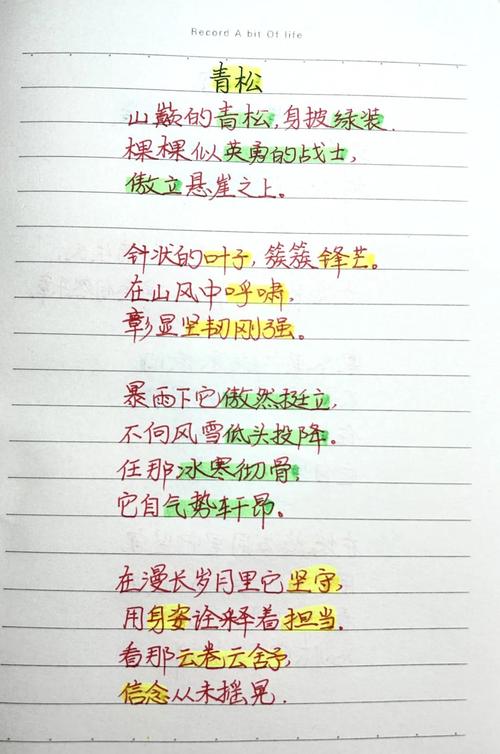 Record A bit Of life
青松
山巅的青松,身披绿装.
棵棵似英勇的战士,
傲立悬崖之上。
针状的叶子,簇簇锋芒。
在山风中呼啸,
彰显坚韧刚强。
暴雨下它傲然挺立,
不向风雪低头投降。
任那冰寒彻骨,
它自气势轩昂。
在漫长岁月里它坚守,
用身姿诠释着担当.
看那云卷云舒,
信念从未摇晃.